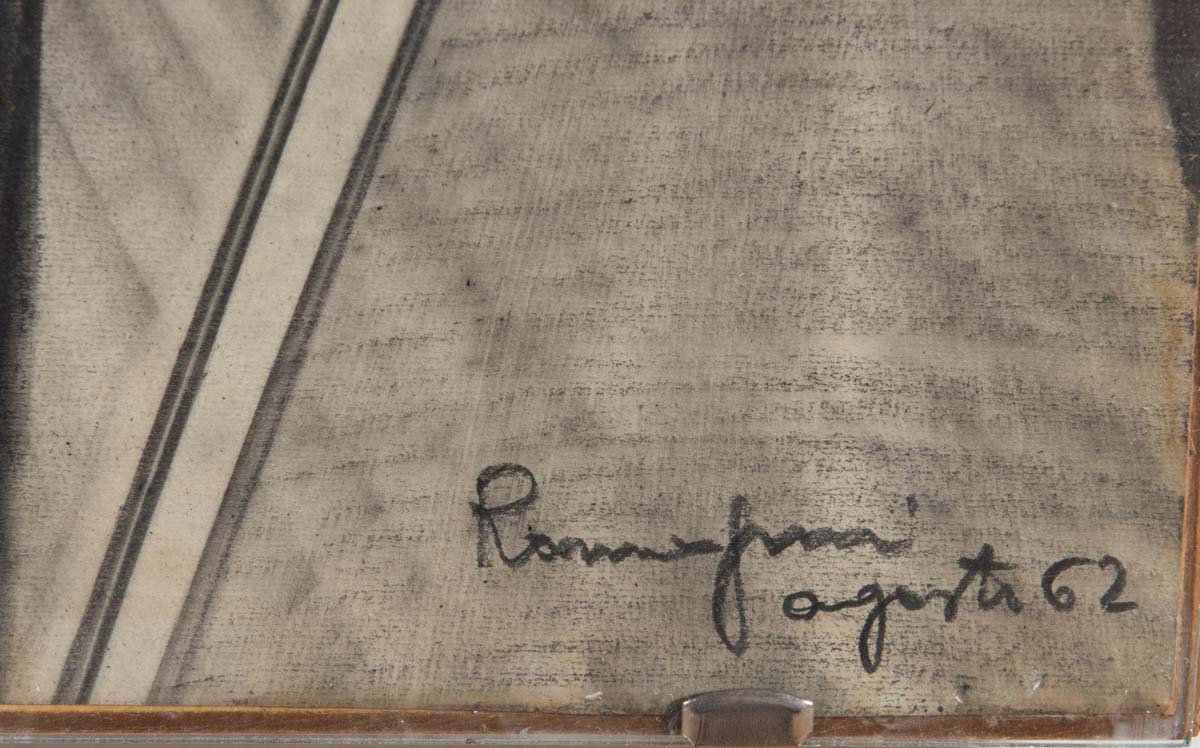 Romagnoni
agosto 62